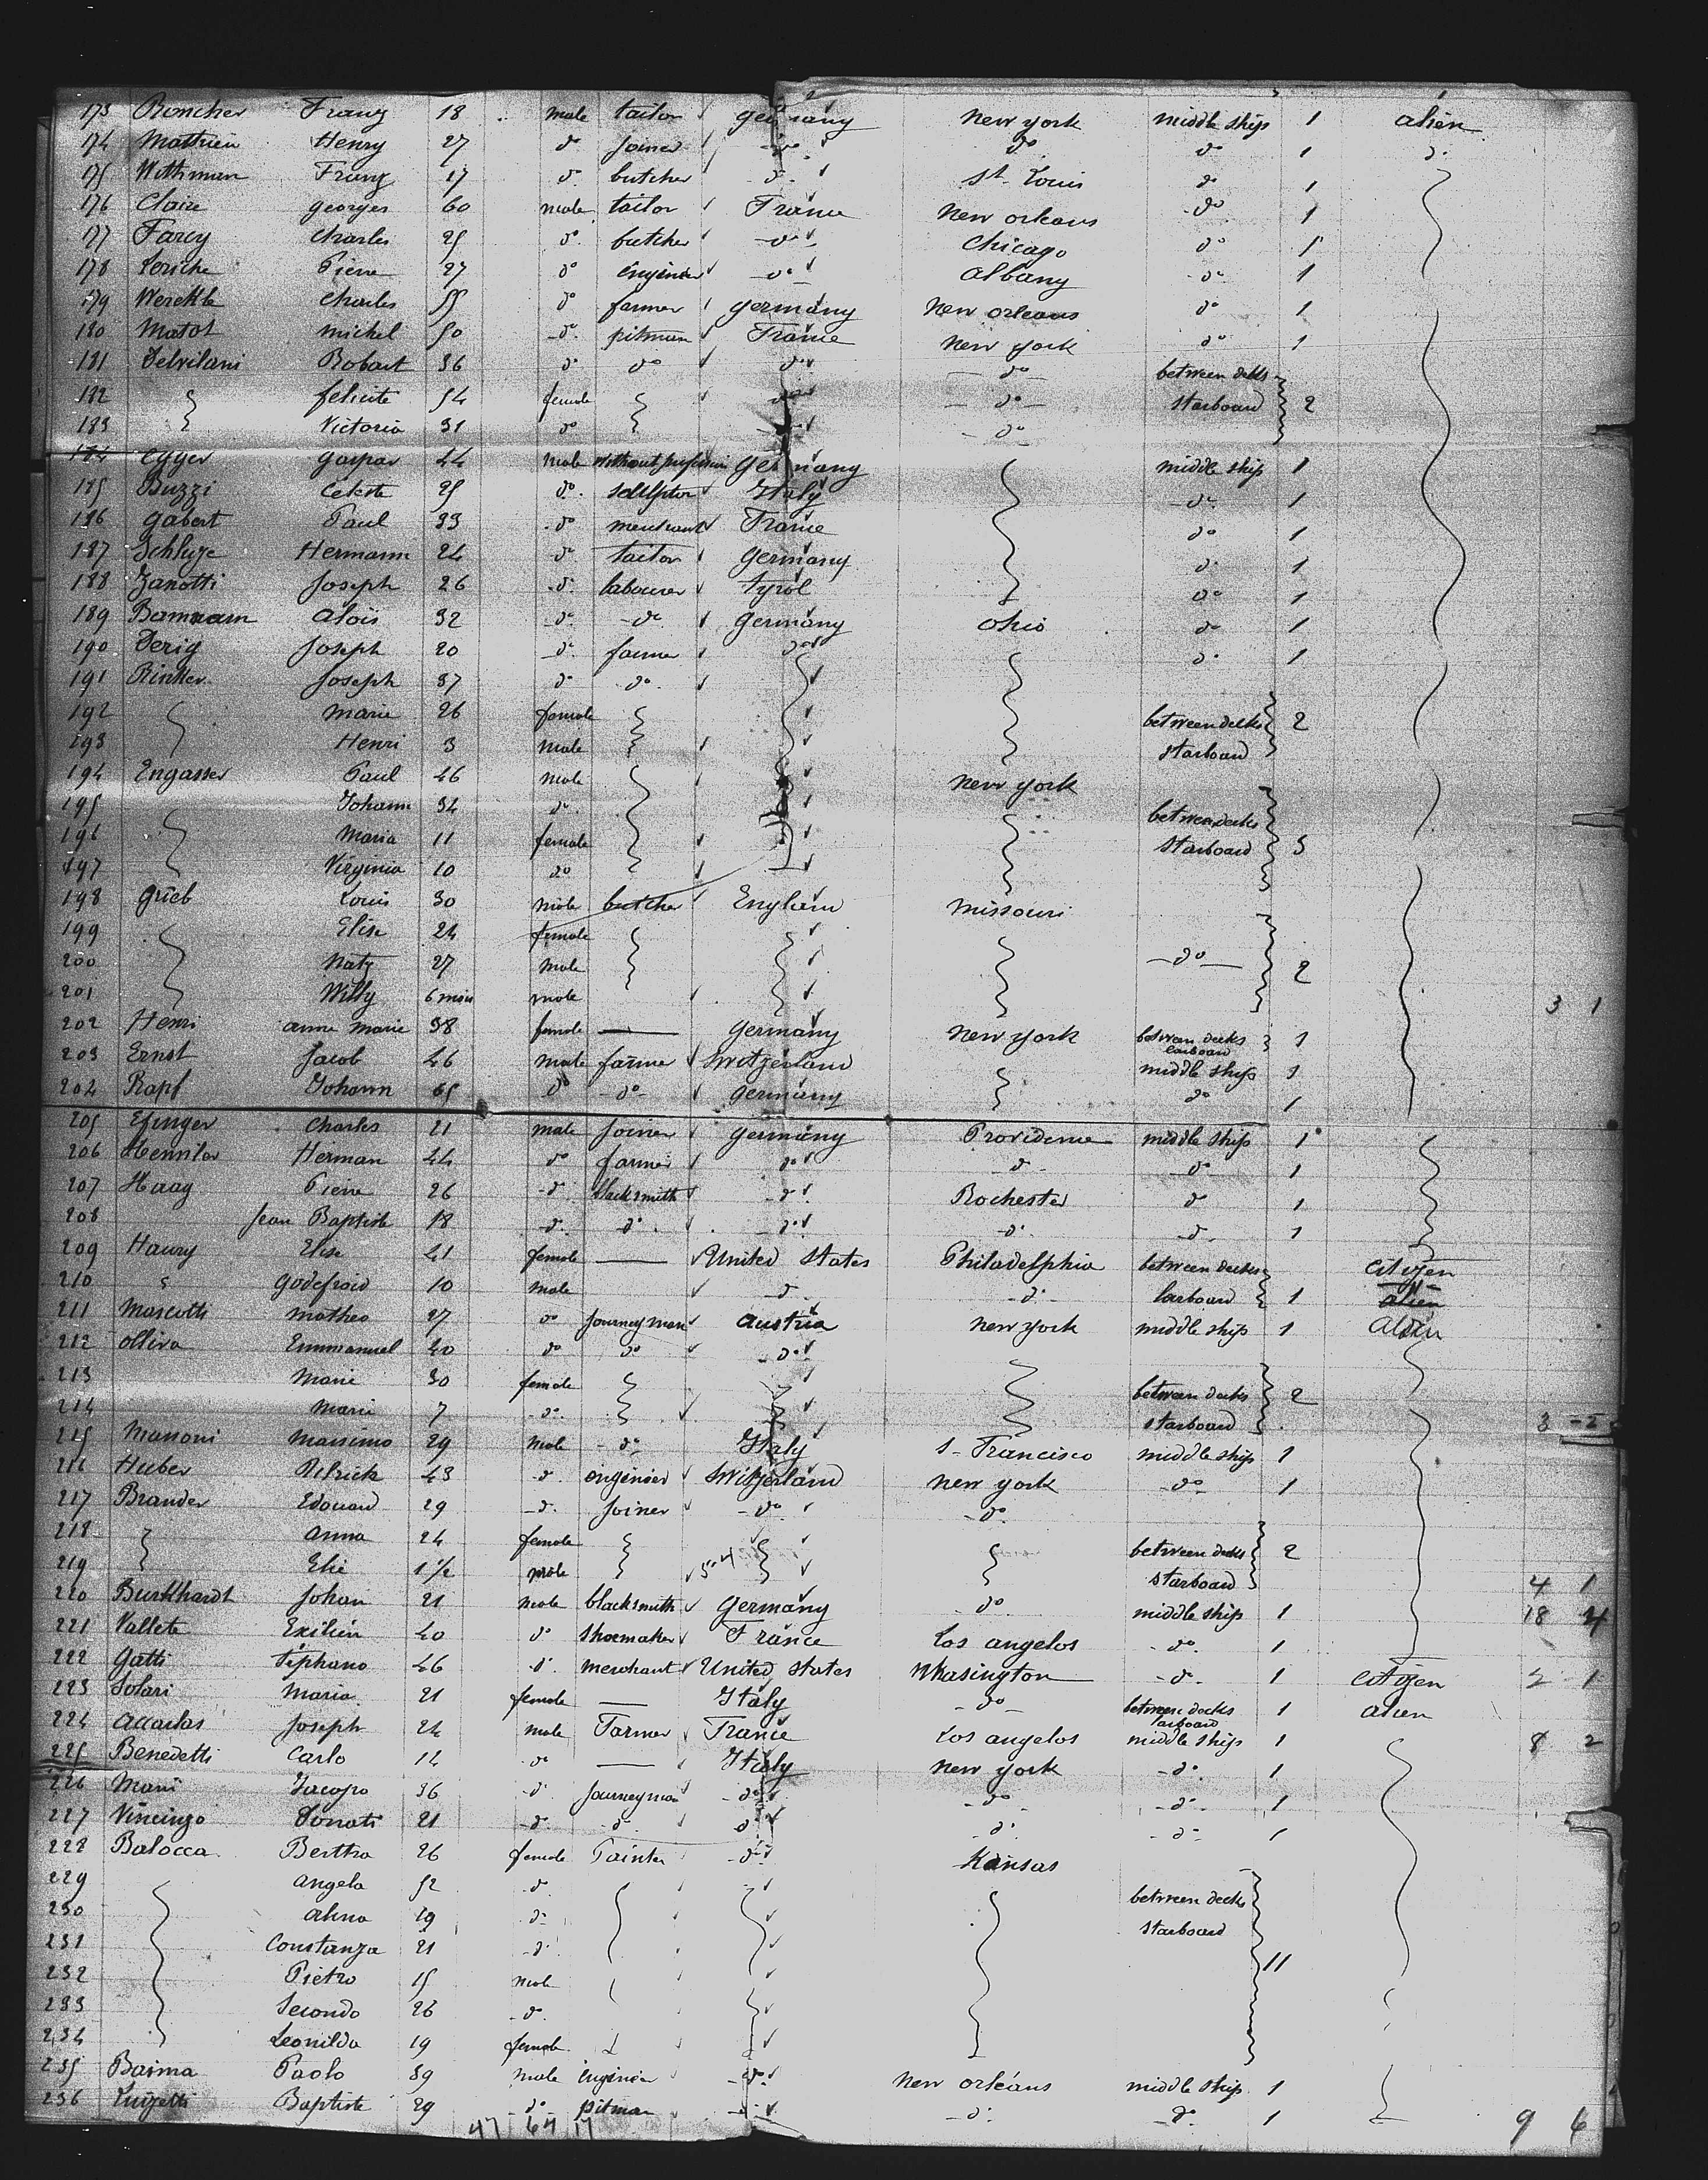 173 Roncher Franz 18 male tailor germany new york middle ships 1 alien
174 Mathieu Henry 27 do joiner do do do 1 d.
175 Withman Franz 17 do butcher do St. Louis do 1
176 Claire georges 60 male tailor France new orleans do 1
177 Farcy Charles 25 do butcher do Chicago do 1
178 Leriche Pierre 27 do engineer do albany do 1
179 Wereckle Charles 55 do farmer germany new orleans do 1
180 Matot michel 50 do pitman France new york do 1
181 Delvilani Robart 36 do do do do between decks
182 felicite 54 female do do starboard 2
183 Victoria 31 do do do
184 Egger gaspar 44 male without profession germany middle ship 1
185 Buzzi Celeste 25 do sculptor Italy do 1
186 gabert Paul 33 do merchant France do 1
187 Schluze Hermann 24 do tailor germany do 1
188 Zanotti Joseph 26 do labourer tyrol do 1
189 Bamnam aloïs 32 do do germany ohio do 1
190 Derig Joseph 20 do farmer do do 1
191 Rinker Joseph 37 do do
192 marie 26 female between decks 2
193 Henri 3 male starboard
194 Engasser Paul 46 male new york
195 Johann 34 do between decks
196 Maria 11 female starboard 3
197 Virginia 10 do
198 Grieb Louis 30 male butcher England missouri
199 Elise 24 female
200 Natz 27 male do 2
201 Willy 6 mois male 3 1
202 Henri anne marie 38 female germany new york between decks larboard 1
203 Ernst Jacob 46 male farmer Switzerland middle ship 1
204 Rapf Johann 65 do do germany do 1
205 Efinger Charles 21 male joiner germany Providence middle ship 1
206 Hennilor Herman 44 do farmer do d do 1
207 Haag Pierre 26 d blacksmith d Rochester d 1
208 Jean Baptiste 18 d. d. d. d. d. 1
209 Haury Elise 41 female United states Philadelphia between decks citizen
210 godefroid 10 male d d. larboard 1 alien
211 Mascotti matheo 27 do journeyman austria new york middle ship 1 alien
212 olliva Emmanuel 40 do do do
213 Marie 30 female between decks 2
214 Marie 7 do. starboard 3 - 2
215 Manoni Massimo 29 male do Italy S. Francisco middle ship 1
216 Huber Ulrick 43 d. engineer Switzerland new york do 1
217 Brander Edouard 29 d. joiner do do
218 anna 24 female between decks 2
219 Elie 1 1/2 male starboard 4 1
220 Burkhardt Johan 21 male blacksmith germany do middle ship 1 18 4
221 Vallete Exilien 40 do shoemaker France Los angelos do. 1
222 Gatti Stephano 46 d. merchant United states Whasington d. 1 citizen 2 1
223 Solari Maria 21 female Italy do between decks larboard 1 alien
224 accarlas Joseph 24 male Farmer France Los angelos middle ship 1 8 2
225 Benedetti Carlo 14 do Italy new york d. 1
226 Mani Jacopo 36 d. Journeyman do do d. 1
227 Vincenzo Donati 21 d. d. d d. d. 1
228 Balocca Bertha 26 female Painter d. Kansas
229 angela 52 d. between decks
230 alina 19 d. starboard
231 Constanza 21 d. 11
232 Pietro 15 male
233 Secondo 26 d.
234 Leonilda 19 female
235 Baima Paolo 39 male Engineer d. new orléans middle ship 1
236 Luizetti Baptiste 29 do pitman d. d. do 1 9 6
47 64 17